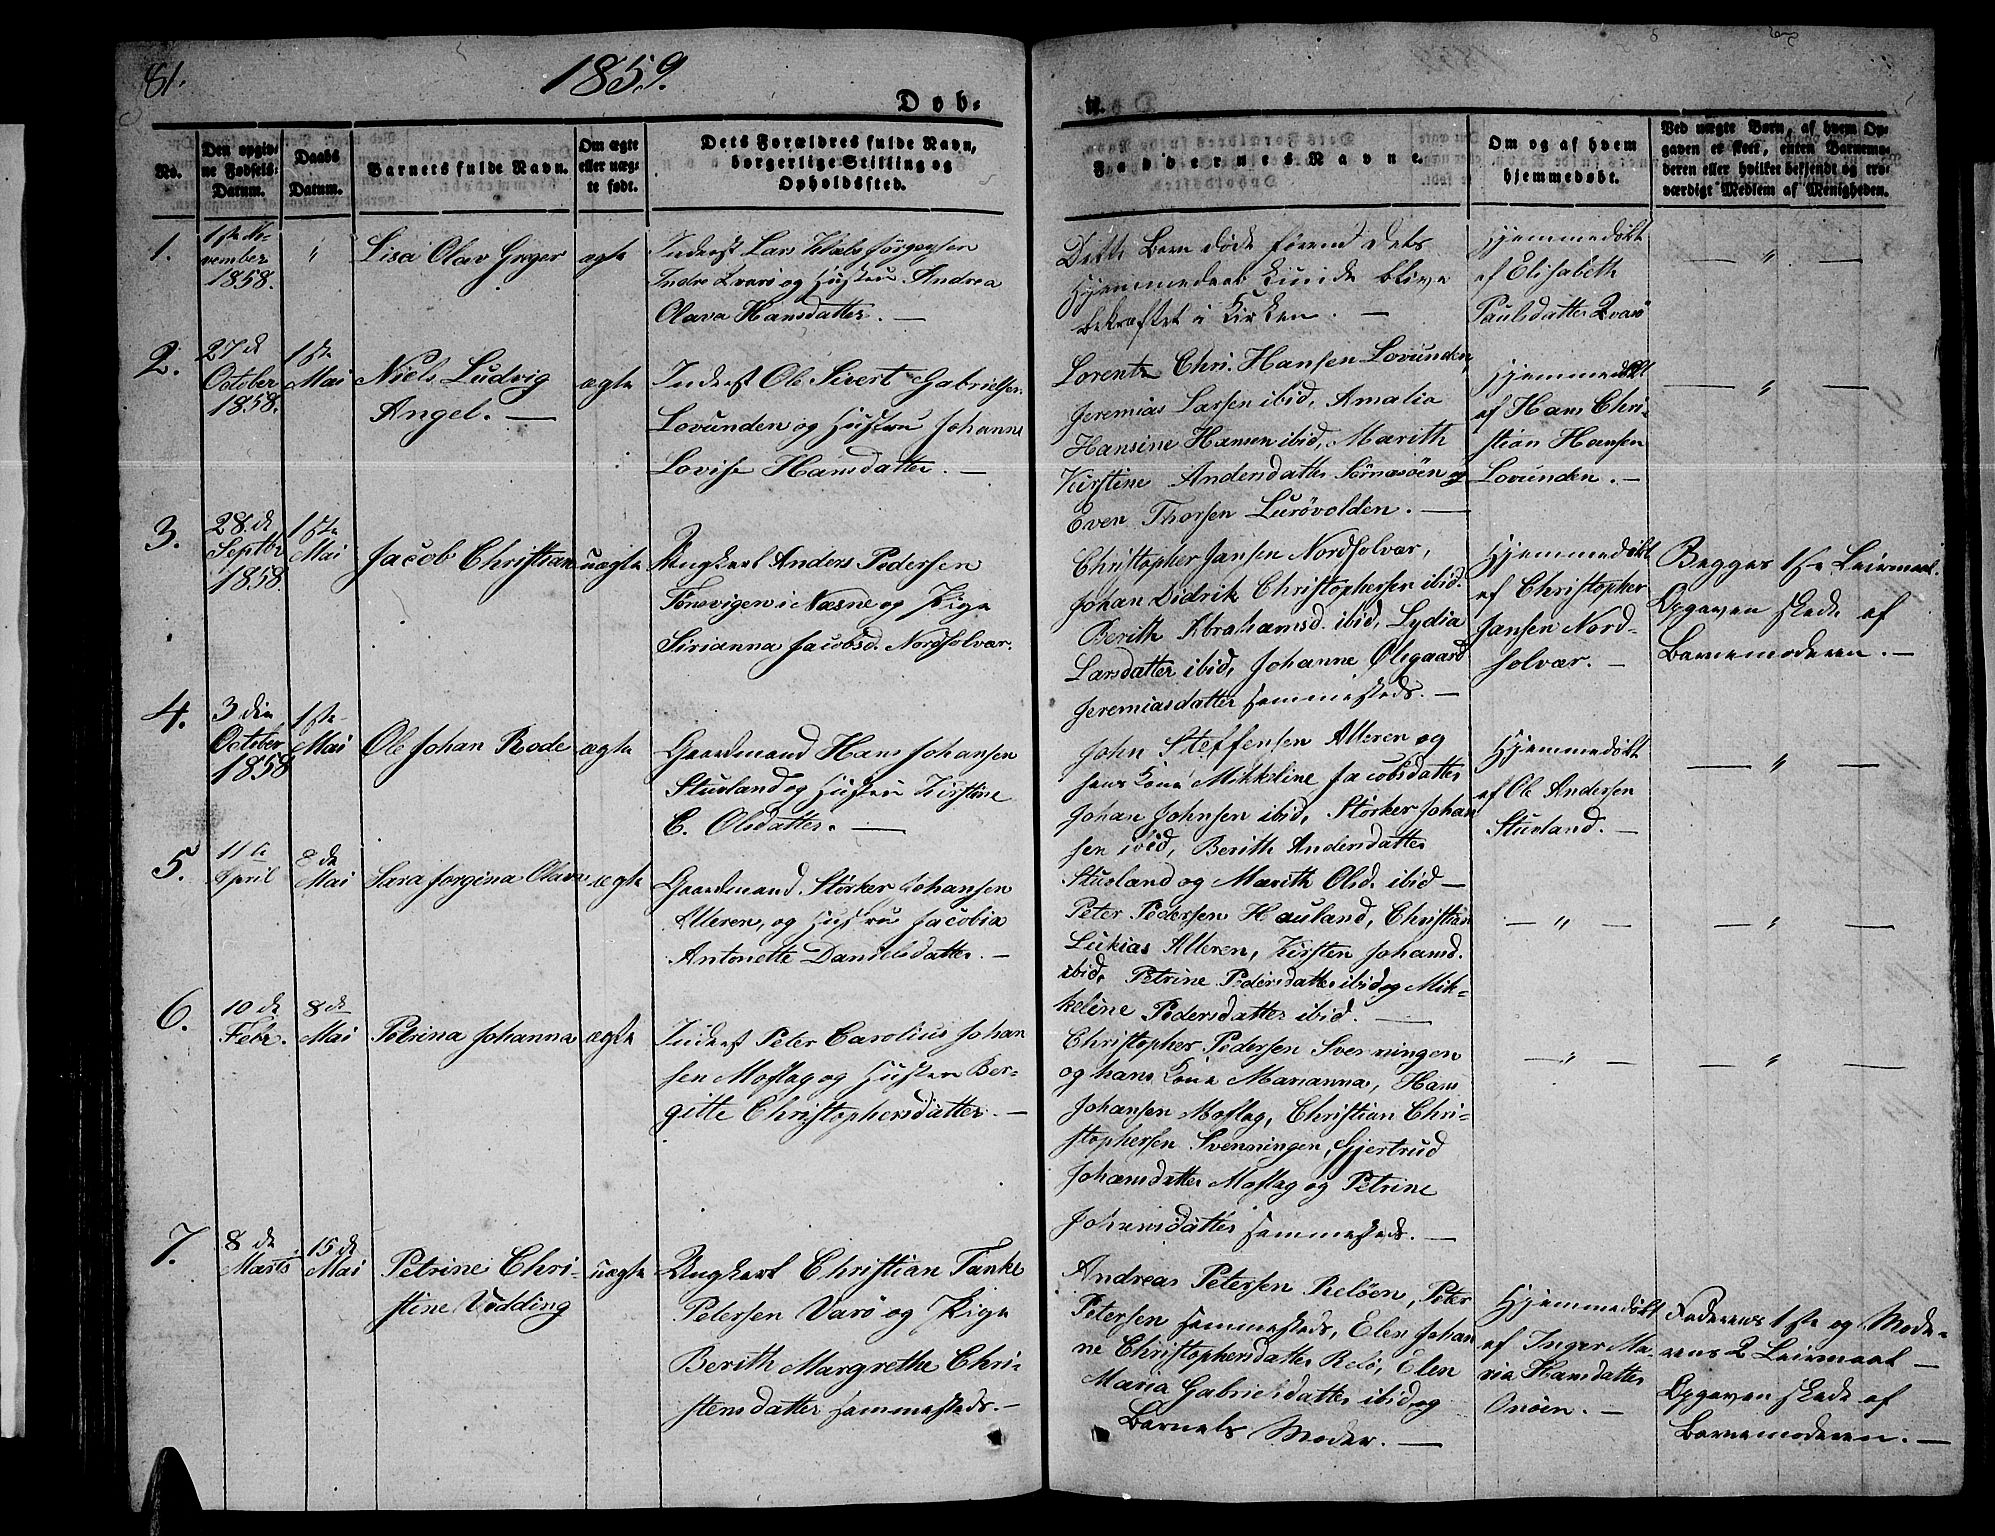 81.
1859.
Døb-
te.
No.
Den opgiv-
ne Fødsels-
Datum.
Daabs
Datum.
Barnets fulde Navn.
Om ægte
eller uæg-
te født.
Dets Forældres fulde Navn,
borgerlige Stilling og
Opholdssted.
Faddernes Navne.
Om og af hvem
hjemmedøbt.
Ved uægte Børn, af hvem Op-
gaven er skeet, enten Barnemo-
deren eller hvilket bekjendt og tro-
værdigt Medlem af Menigheden.
1.
1ste No-
vember
1858.
"
Lisa Olav Greger
ægte
Inderst Lars
Indre Qvarø og Hustru Andrea
Olava Hansdatter. —
Dette Barn døde førend dets
Hjemmedaab kunde blive
bekræftet i Kirken. —
Hjemmedøbt
af Elisabeth
Paulsdatter Qvarø
— " —
2.
27 de
October
1858.
1ste
Mai
Niels Ludvig
Angel. —
ægte
Inderst Ole Sivert Gabrielsen
Lovunden og Hustru Johanne
Lovise Hansdatter. —
Lorents Chr. Hansen Lovunden,
Jeremias Larsen ibid, Amalia
Hansine Hansen ibid, Marith
Kirstine Andersdatter Sørnæsøen og
Even Thorsen Lurøvolden. —
Hjemmedøbt
af Hans Chri-
stian Hansen
Lovunden. —
— " —
3.
28. de
Septbr
1858
1ste
Mai
Jacob Christian
uægte
Ungkarl Anders Pedersen
Tonsvigen i Næsne og Pige
Sirianna Jacobsd. Nordsolvær.
Christopher Jansen Nordsolvær,
Johan Didrik Christophersen ibid.
Berith Abrahamsd. ibid, Lydia
Larsdatter ibid, Johanne Olegaard
Jeremiasdatter sammesteds. —
Hjemmedøbt
af Christopher
Jansen Nord-
solvær. —
Begges 1ste Leiermaal.
Opgaven skede af
Barnemoderen. —
4.
3 die
October
1858
1ste
Mai
Ole Johan Rode
ægte
Gaardmand Hans Johansen
Stuvland og Hustru Kirstine
C. Olsdatter. —
John Steffensen Alteren og
hans Kone Mikkeline Jacobsdatter
Johan Johnsen ibid, Størker Johan
sen ibid, Berith Andersdatter
Stuvland og Marith Olsd. ibid —
Hjemmedøbt
af Ole Andersen
Stuvland. —
— " —
5.
11te
April
8 de
Mai
Sara Jorgina Olava
ægte
Gaardmand Størker Johansen
Alteren, og Hustru Jacobia
Antonette Danielsdatter. —
Peter Pedersen Hauland, Christian
Lukias Alteren, Kirsten Johansd.
ibid, Petrine Pedersdatter ibid og Mik-
keline Pedersdatter ibid. —
— " —
— " —
6.
10 de
Febr.
8 de
Mai
Petrina Johanna
ægte
Inderst Peter Carolius Johan
sen Moflag og Hustru Ber-
gitte Christophersdatter. —
Christopher Pedersen Svenningen
og hans Kone Marianna, Hans
Johansen Moflag, Christian Chri-
stophersen Svenningen, Gjertrud
Johansdatter Moflag og Petrine
Johansdatter sammesteds. —
— " —
— " —
7.
8 de
Marts
15 de
Mai
Petrine Chri-
stine Vedding
uægte
Ungkarl Christian Tanke
Petersen Varø og Pige
Berith Margrethe Chri-
stensdatter sammesteds. —
Andreas Petersen Reløen, Peter
Petersen sammesteds, Elen Johan
ne Christophersdatter Relø, Elen
Maria Gabrielsdatter ibid og
Barnets Moder. —
Hjemmedøbt
af Inger Ma-
ria Hansdatter
Onøen. —
Faderens 1ste og Mode-
rens 2 Leiermaal —
Opgaven skede af
Barnemoderen. —